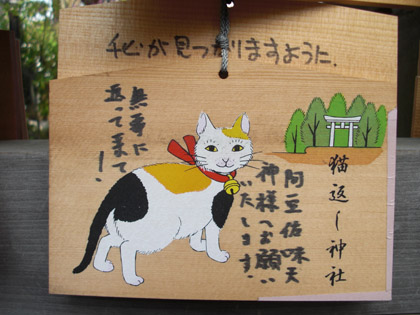 心が見つかりますように.
無事に
返って来て
ー!
阿豆佐味天
神様へお願い
いたします.
猫返し神社